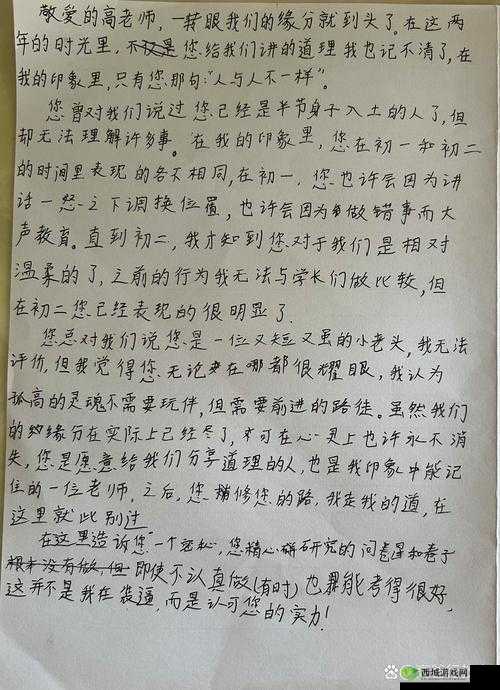 敬爱的高老师，一转眼我们的缘分就到头了。在这两
年的时光里，不仅是您给我们讲的道理我也记不清了，在
我的印象里，只有您那句："人与人不一样"。
您曾对我们说过您已经是半节身子入土的人了，但
却无法理解许多事。在我的印象里，您在初一和初二
的时间里表现的各不相同，在初一，您也许会因为讲
话一怒之下调换位置，也许会因为做错事而大
声教育。直到初二，我才知到您对于我们是相对
温柔的了，之前的行为我无法与学长们做比较，但
在初二您已经表现的很明显了.
您总对我们说您是一位又短又虽的小老头，我无法
评价，但我觉得您无论在哪都很耀眼，我认为
孤高的灵魂不需要玩伴，但需要前进的路徒。虽然我们
的缘分在实际上已经尽了，可在心灵上也许永不消
失，您是愿意给我们分享道理的人，也是我印象中能记
住的一位老师，之后，您修您的路，我走我的道，在
这里就此别过
在这里造诉您一个密秘，您精心研究的问卷星和卷子
根本没有做，但即使不认真做(有时)也能考得很好，
这并不是我在装逼，而是认可您的实力！
西城游戏网